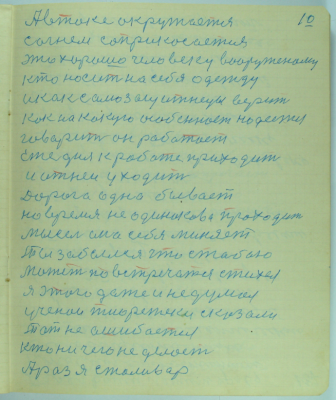 10
А в токе окружается
согнем соприкосается
это хорошо человеку вооруженому
кто носит на себя одежду
и как самозащитнецы верит
как на какую особеност надеется
говарит он работает
ето дня к работе приходит
и отней уходит
Дорога одна бывает
но время не одинаково проходит
мысел она себя меняет
Ты забылся что стабою
может повстречатся стихея
я этого даже и не думал
ученаи тиоретеки сказали
Тот не ашибается
кто ничего не делает
А раз я сталивар